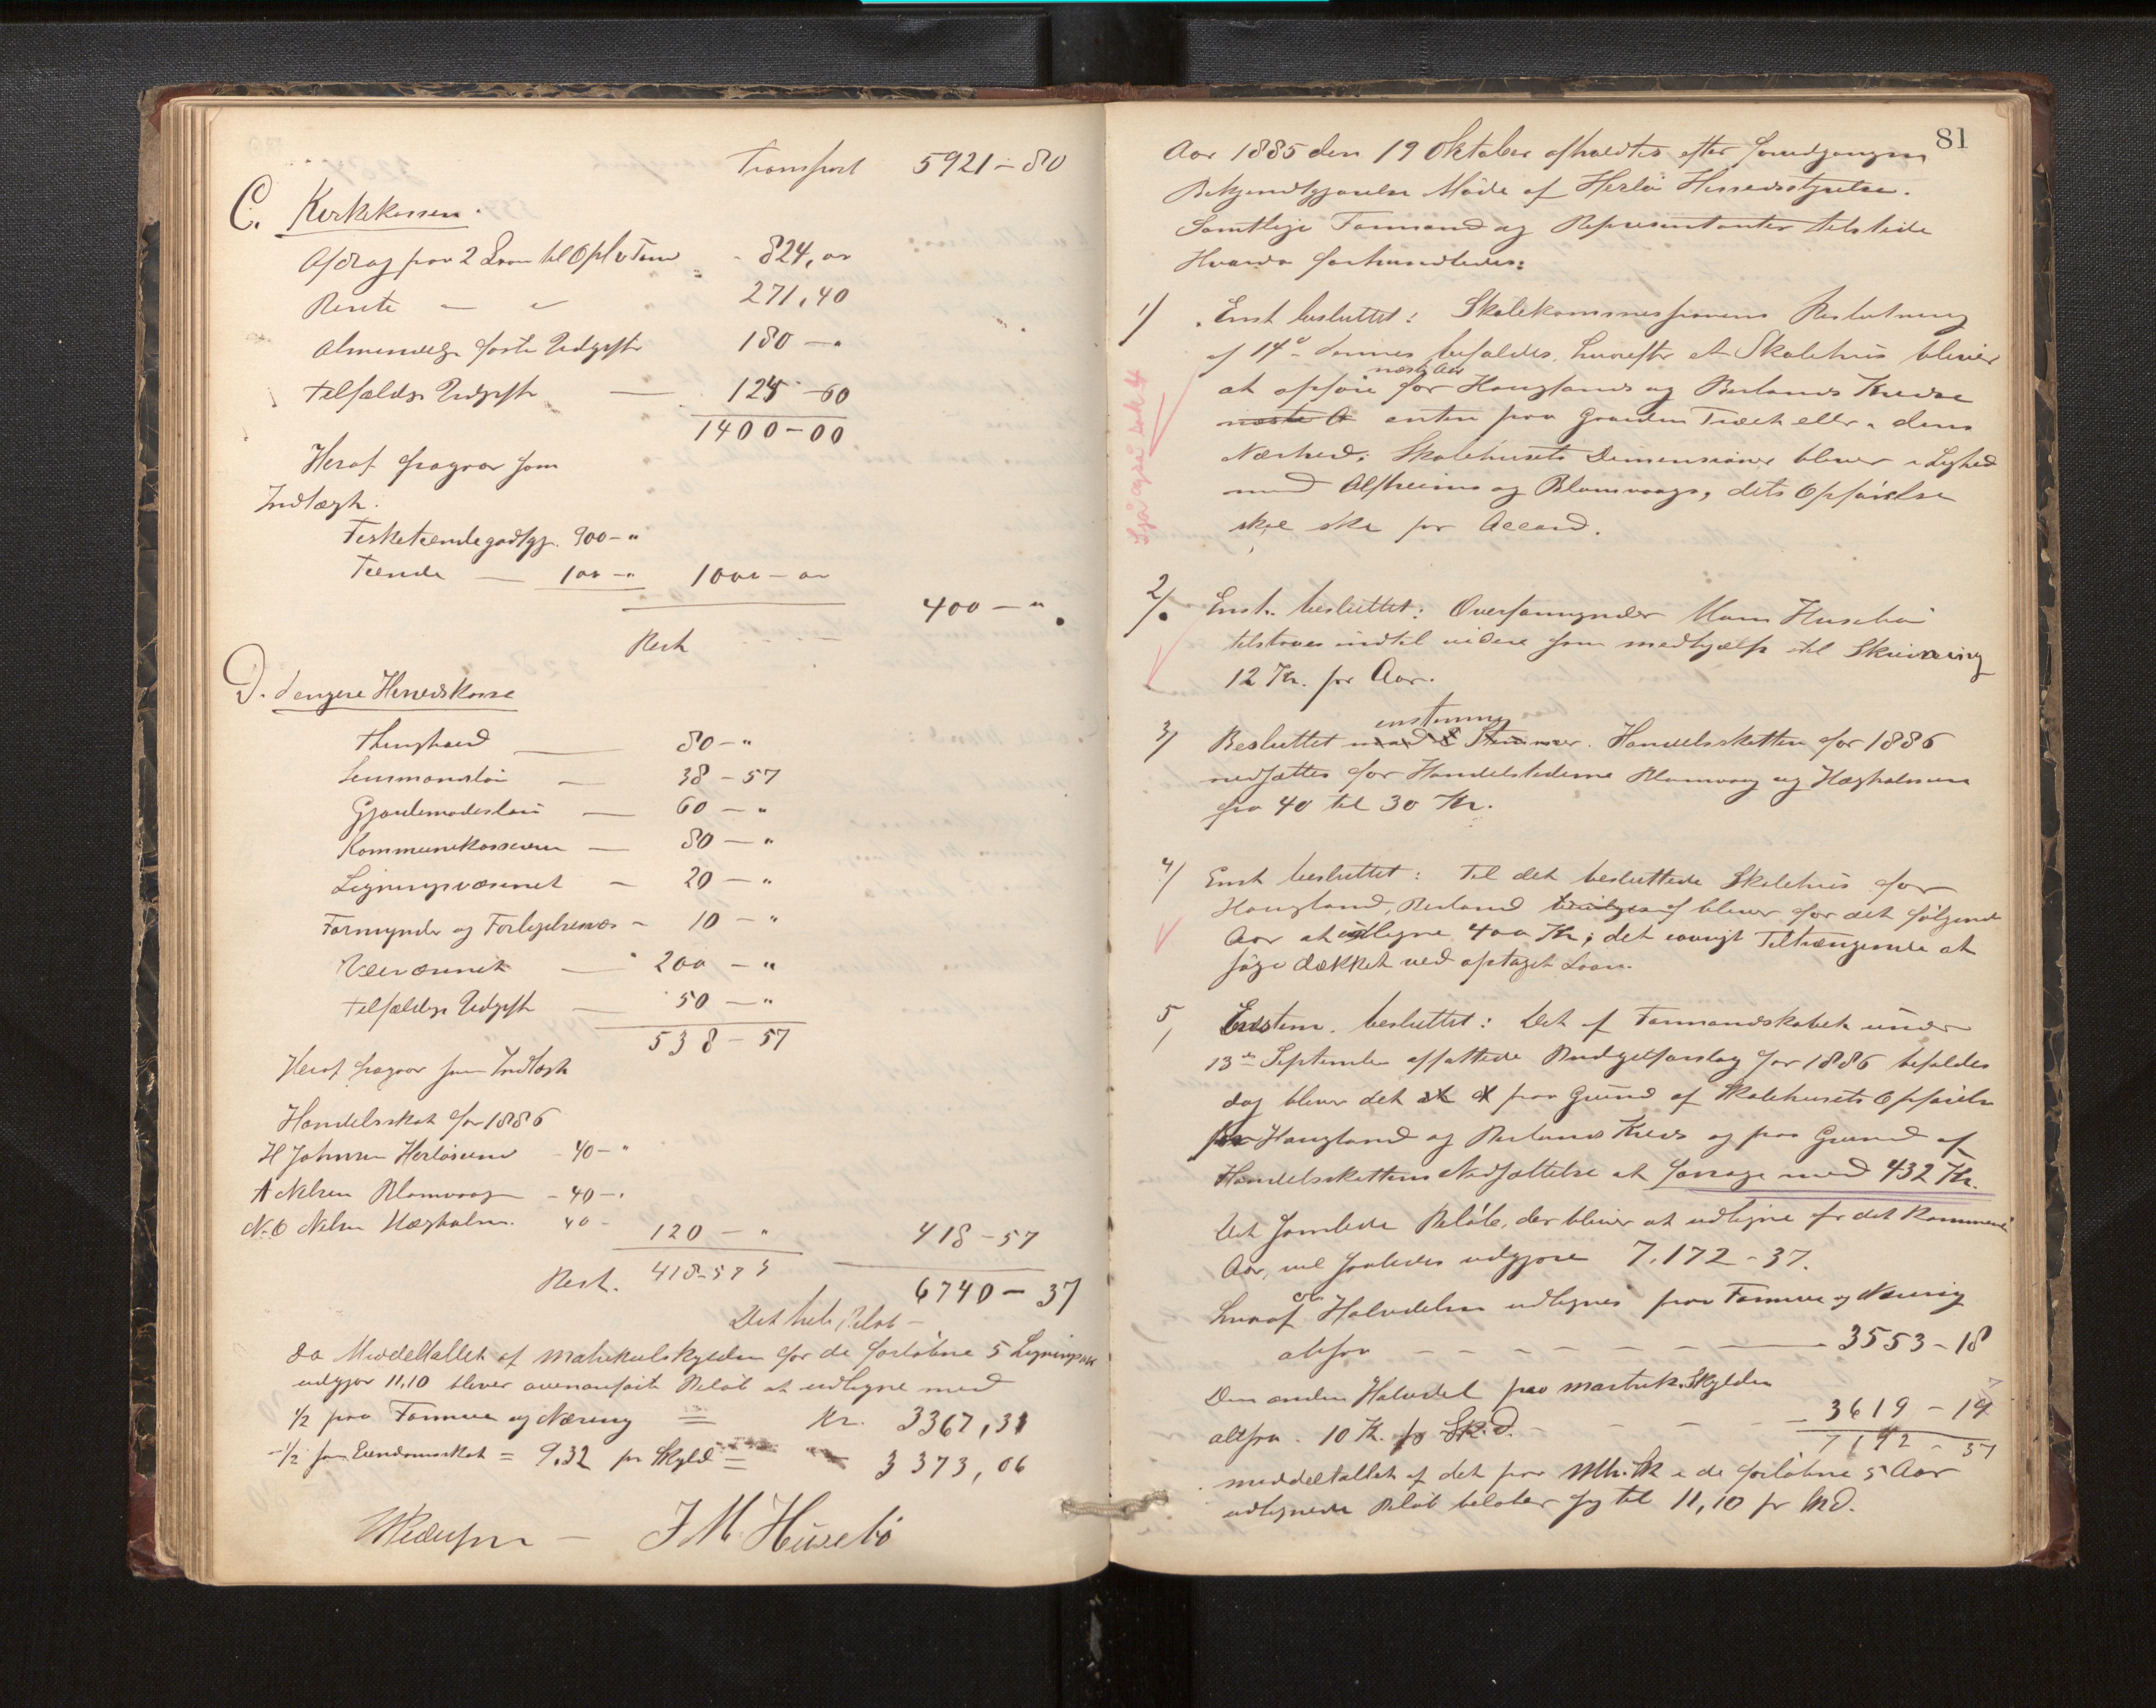 Transport 5921 – 80
C. Kirkekassen.
Afdrag paa 2 Laan til Opl v Tm 824,00
Rente — " 271,40
Almindelige faste Udgifter 180 – "
Tilfældige Udgifter — 125 – 60
1400 – 00
Heraf fragaar som
Indtægt.
Fisketiendegodtgj. 900 – "
Tiende — 100 – " 1000 – 00
400 – "
Rest
D. den egne Herredskasse
Thinghold — 80 – "
Lensmandsløn — 38 – 57
Gjordemoderløn — 60 – "
Kommunekassereren — 80 – "
Ligningsvæsenet – 20 – "
Formynder og Forligelsesvæs – 10 – "
Veivæsenet — 200 – "
Tilfældige Udgifter — 50 – "
538 – 57
Heraf fragaar som Indtægt
Handelsskat for 1886
H Johnsen Herløsund – 40 – "
A Nilsen Blomvaag – 40 – "
N. O Nilsen Hægholm. 40 –
120 – " 418 – 57
Rest. 418 – 57
6740 – 37
Det hele Beløb –
Da Middeltallet af Matrikulskylden for de forløbne 5 Ligningsaar
udgjør 11,10 bliver ovenanførte Beløb at udligne med
1/2 paa Formue og Næring = Kr. 3367,31
– 1/2 som Eiendomsskat = 9,32 pr Skyld = 3373,06
J M. Husebø
81
Aar 1885 den 19 Oktober afholdtes efter foregangen
Bekjendtgjørelse Møde af Herlø Herredsstyrelse.
Samtlige Formænd og Repræsentanter tilstede
Hvorda forhandledes:
1) Enst besluttet: Skolekommissionens Beslutning
af 14de dennes bifaldes, hvorefter et Skolehus bliver
næste Aar
at opføre for Hauglands og Berlands Kredse
næste A enten paa Gaarden Træet eller i dens
Nærhed; Skolehusets Dimensioner bliver i Lighed
med Alfheims og Blomvaags, dets Opførelse
skal ske pr Accord.
Sjå også sak 4
2) Enst. besluttet: Overformynder Mons Husebø
tilstaaes indtil videre som medhjælp til Skrivning
12 Kr. pr Aar.
enstemmig
3) Besluttet med Stemmer. Handelsskatten for 1886
nedsættes for Handelsstederne Blomvaag og Hægholmen
fra 40 til 30 Kr.
4) Enst besluttet: Til det besluttede Skolehus for
Haugland, Berland bliver for det følgende
Aar at udligne 400 Kr; det øvrigt Tiltrængende at
søge dækket ved optaget Laan.
5) Enstem. besluttet: Det af Formandskabet under
13de September affattede Budgetforslag for 1886 bifaldes
dog bliver det paa Grund af Skolehusets Opførelse
for Haugland og Berlands Kreds og paa Grund af
Handelsskattens Nedsættelse at forøge med 432 Kr.
Det samlede Beløb, der bliver at udligne for det kommende
Aar, vil saaledes udgjøre 7.172 – 37.
hvoraf Halvdelen udlignes paa Formue og Næring
altsaa — 3553 – 18
Den anden Halvdel paa matrik. Skylden
altsaa. 10 Kr. pr Sk.D. — 3619 – 19
7172 – 37
middeltallet af det paa Mtr. Sk i de forløbne 5 Aar
udlignede Beløb beløber sig til 11,10 pr Skd.